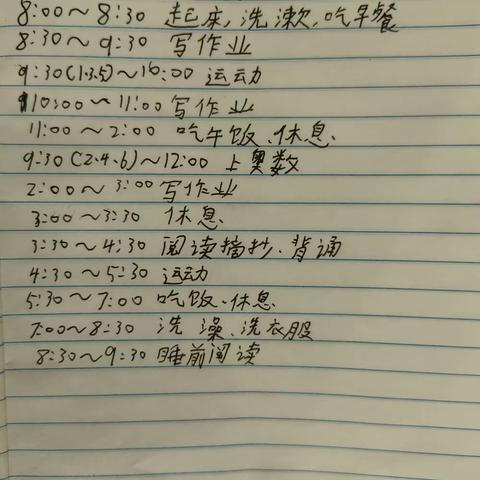 8:00～8:30 起床,洗漱,吃早餐
8:30～9:30 写作业
9:30(1.3.5)～10:00 运动
10:00～11:00 写作业
11:00～2:00 吃午饭、休息、
9:30(2.4.6)～12:00 上奥数
2:00～3:00 写作业
3:00～3:30 休息、
3:30～4:30 阅读摘抄、背诵
4:30～5:30 运动
5:30～7:00 吃饭、休息
7:00～8:30 洗澡、洗衣服
8:30～9:30 睡前阅读